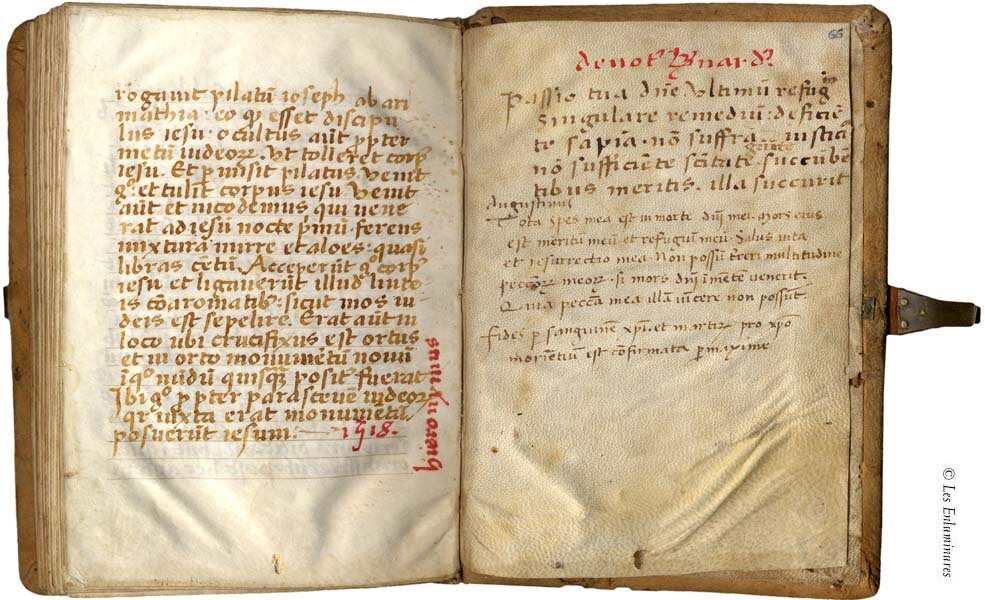 rogauit pilatū ioseph ab ari
mathia · eo ꝙ esset discipu
lus iesu · occultus aūt ꝓpter
metū iudeoꝝ. Vt tolleret corpꝰ
iesu. Et ꝑmisit pilatus. Venit
gͦ. et tulit corpus iesu. Venit
aūt et nicodemus qui vene
rat ad iesū nocte pͥmū · ferens
mixturā mirre et aloes · quasi
libras cētū. Acceperūt gͦ corpꝰ
iesu et ligauerūt illud linte
is cū aromatibꝰ · sicut mos iu
deis est sepelire. Erat aūt in
loco vbi crucifixus est ortus
et in orto monumētū nouū
ī quo nūdū quisquā positꝰ fuerat
Ibi gͦ ꝓpter parasceuē iudeoꝝ
qꝛ iuxta erat monumētū.
posuerūt iesum. 1518.
66
deuotꝰ Bernardꝰ
Passio tua dn̄e Vltimū refugiū
Singulare remediū : deficiē
te sapīa · nō suffra iusticia
gāte
nō sufficiēte sc̄itate · succūbē
tibus meritis · illa succurit
Augustinus
Tota spes mea est in morte dn̄i mei. Mors eius
est meritū meū et refugiū meū. Salus vita
et resurrectio mea. Non possū terreri multitudine
pecc̄oꝝ meoꝝ · si mors dn̄i in mētē venerit.
Quia pecc̄a mea illā vīcere non possūt.
Fides ꝑ sanguinem xp̄i et martirū pro xp̄o
moriētiū est cōfirmata ꝑ maxime
© Les Enluminures